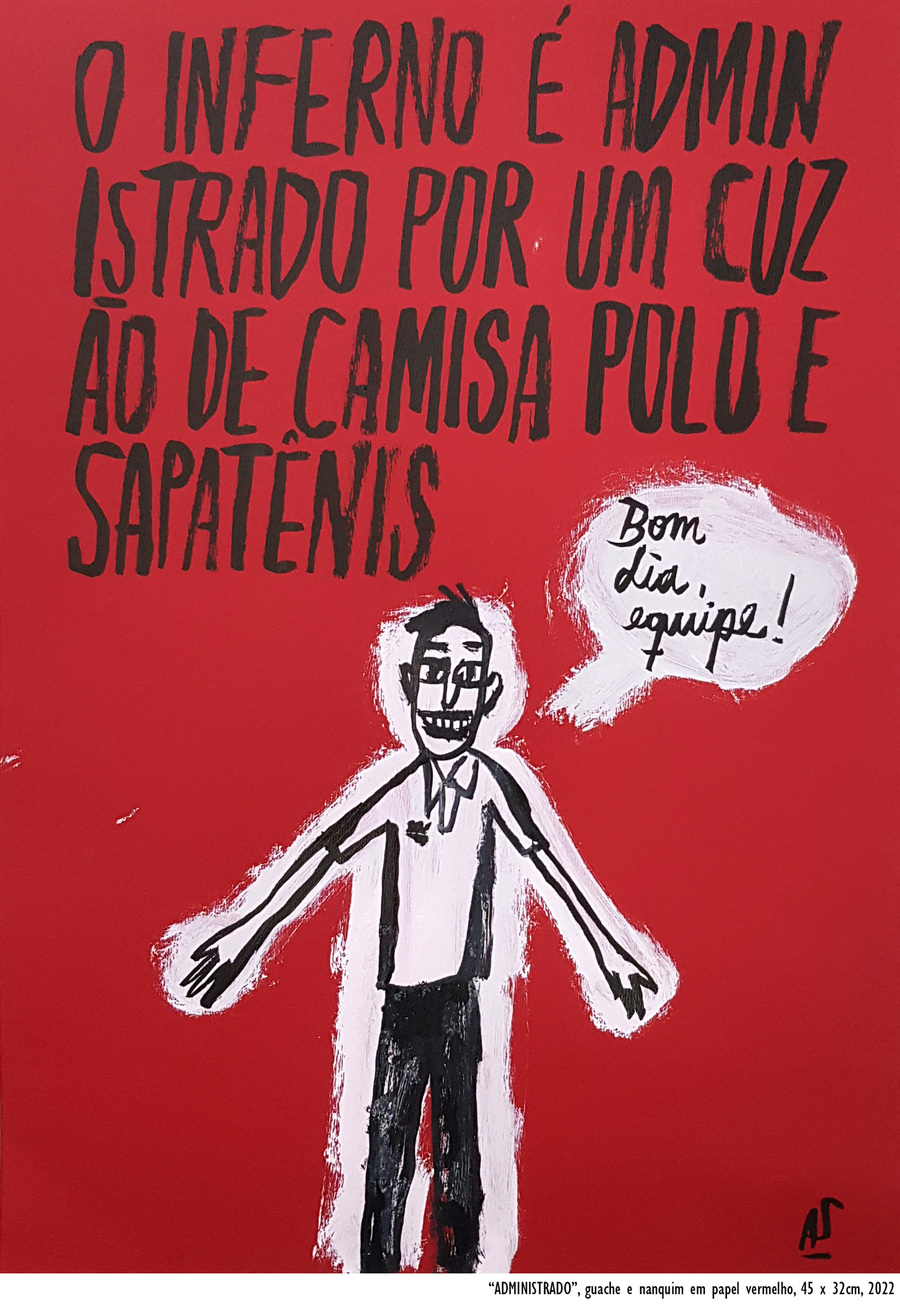 O INFERNO É ADMIN
ISTRADO POR UM CUZ
ÃO DE CAMISA POLO E
SAPATÊNIS
Bom
dia,
equipe!
AS
“ADMINISTRADO”, guache e nanquim em papel vermelho, 45 x 32cm, 2022